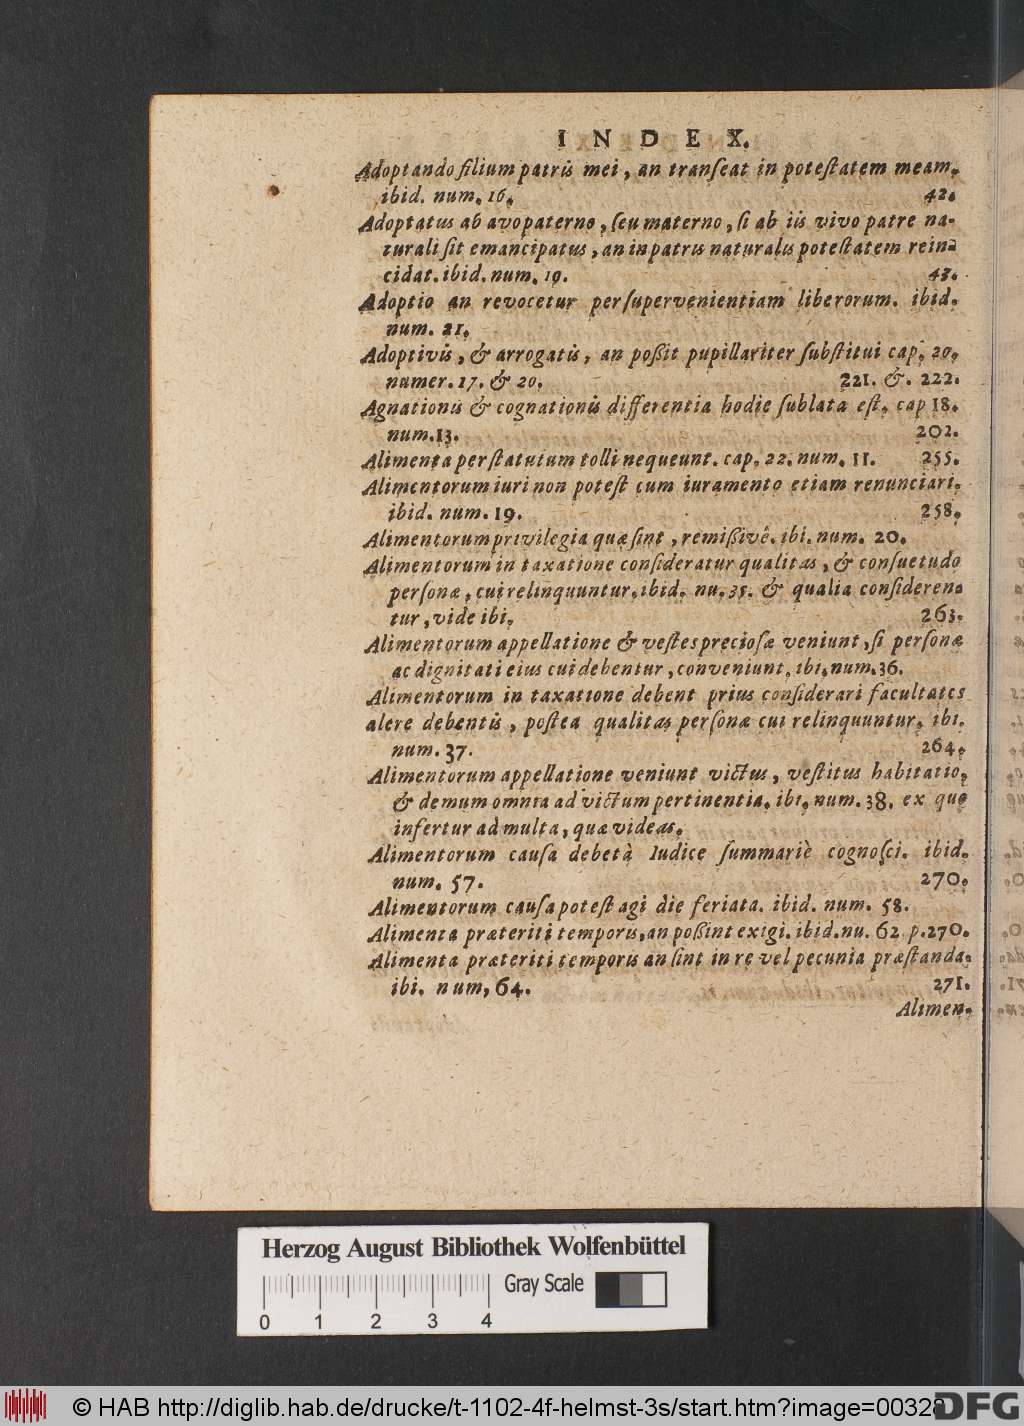 INDEX.
Adoptando filium patris mei, an tranſeat in poteſtatem meam.
ibid. num. 16. 42.
Adoptatus ab avo paterno, ſeu materno, ſi ab iis vivo patre na-
turali ſit emancipatus, an in patris naturalis poteſtatem rein-
cidat. ibid. num. 19. 43.
Adoptio an revocetur per ſupervenientiam liberorum. ibid.
num. 21.
Adoptivis, & arrogatis, an poßit pupillariter ſubſtitui cap. 20.
numer. 17. & 20. 221. &. 222.
Agnationis & cognationis differentia hodie ſublata eſt. cap 18.
num. 13. 202.
Alimenta per ſtatutum tolli nequeunt. cap. 22. num. 11. 255.
Alimentorum iuri non poteſt cum iuramento etiam renunciari.
ibid. num. 19. 258.
Alimentorum privilegia quæ ſint, remißivè. ibi. num. 20.
Alimentorum in taxatione conſideratur qualitas, & conſuetudo
perſonæ, cui relinquuntur. ibid. nu. 35. & qualia conſideren-
tur, vide ibi. 263.
Alimentorum appellatione & veſtes precioſæ veniunt, ſi perſonæ
ac dignitati eius cui debentur, conveniunt. ibi. num. 36.
Alimentorum in taxatione debent prius conſiderari facultates
alere debentis, poſtea qualitas perſonæ cui relinquuntur. ibi.
num. 37. 264.
Alimentorum appellatione veniunt victus, veſtitus habitatio,
& demum omnia ad victum pertinentia. ibi. num. 38. ex quo
infertur ad multa, quæ videas.
Alimentorum cauſa debet à Iudice ſummariè cognoſci. ibid.
num. 57. 270.
Alimentorum cauſa poteſt agi die feriata. ibid. num. 58.
Alimenta præteriti temporis, an poßint exigi. ibid. nu. 62 p. 270.
Alimenta præteriti temporis an ſint in re vel pecunia præſtanda.
ibi. num, 64. 271.
Alimen-
Herzog August Bibliothek Wolfenbüttel
Gray Scale
0 1 2 3 4
© HAB http://diglib.hab.de/drucke/t-1102-4f-helmst-3s/start.htm?image=00328
DFG